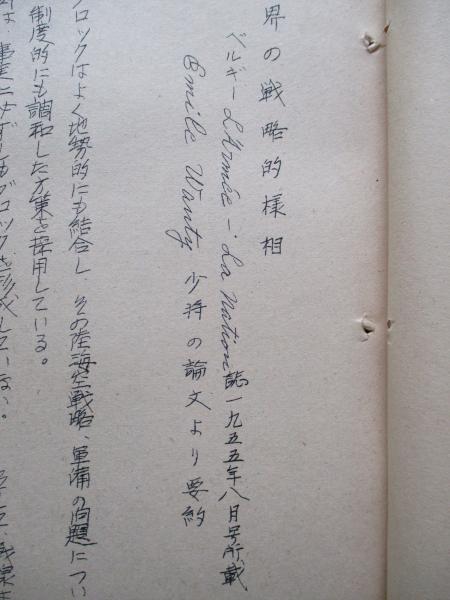 界の戦略的様相
ベルギー L'Armée – La Nation 誌一九五五年八月号所載
Emile Wanty 少将の論文より要約
ロックはよく地勢的にも結合し、その陸海空戦略、軍備の問題につい
制度的にも調和した方策を採用している。
ブロックを形成していない。